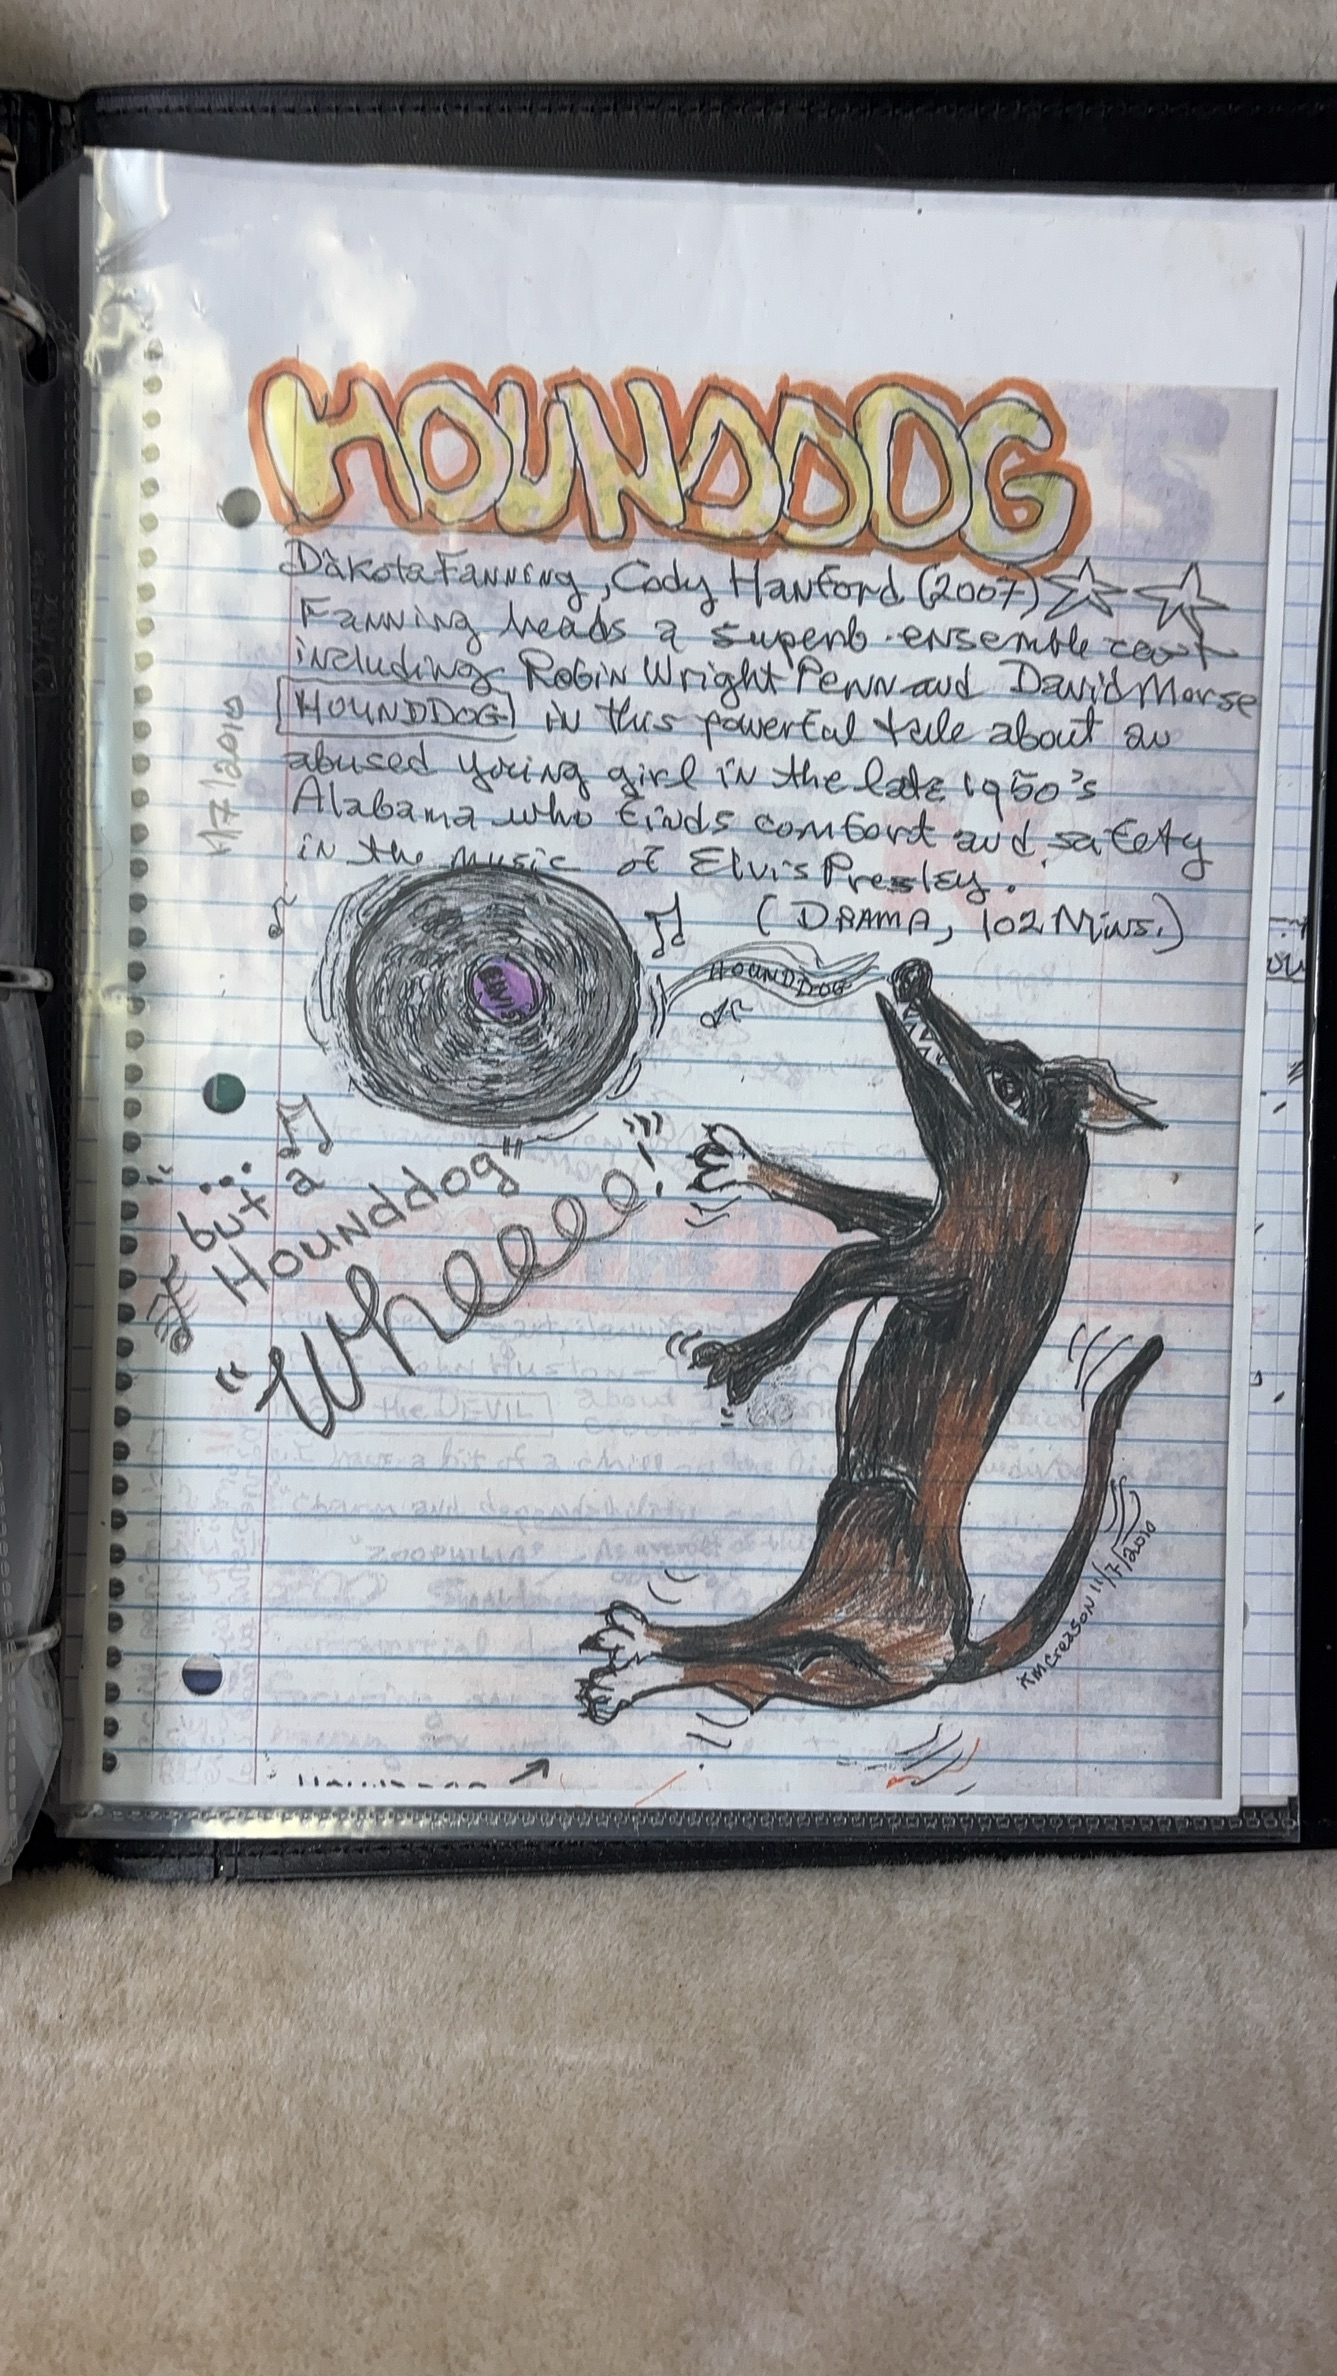 HOUNDDOG
Dakota Fanning, Cody Hanford (2007)
Fanning heads a superb ensemble cast
including Robin Wright Penn and David Morse
HOUNDDOG in this powerful tale about an
abused young girl in the late 1950's
Alabama who finds comfort and safety
in the music of Elvis Presley.
(DRAMA, 102 Mins.)
11/7/2010
ELVIS
HOUNDDOG
"... but a
Hounddog"
"Wheeee!"
KMCreason 11/7/2010
the DEVIL
about
I have a bit of a chill
charm and dependability
"ZOOPHILIA"